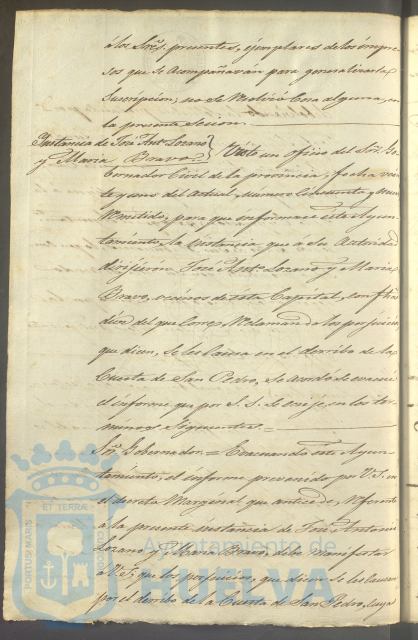 á los Sres. presentes, ejemplares de los impre-
sos que se acompañavan para generalizar la
Suscripcion; no se resolvió cosa alguna, en
la presente sesion.
Instancia de José Antº Lozano
y Maria Bravo.
Visto un oficio del Sor. Go-
bernador Civil de la provincia, fecha vein-
te y uno del actual, número cincuenta y
remitido, para que informase este Ayun-
tamiento, la instancia que á su autoridad
dirijieron José Antº Lozano y Maria
Bravo, vecinos de esta Capital, con fha
diez del que corre, reclamando los perjuicios
que dicen, se les causa en el derribo de la
Cuesta de San Pedro, se acordó evacuar
el informe que por S. S. se exije, en los ter-
minos siguientes.
Sor. Gobernador = Evacuando este Ayun-
tamiento, el informe prevenido por V.S. en
el decreto marginal que antecede, referente
á la presente instancia de José Antonio
Lozano y Maria Bravo, debe manifestar
á V.S. que los perjuicios, que dicen se les causan
por el derribo de la Cuesta de San Pedro, cuya
PORTUS MARIS
ET TERRAE
CUSTODIA
Ayuntamiento de
HUELVA